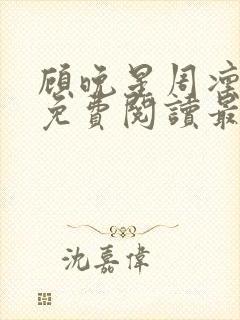 顾晚星周凛
免費閱讀最
沈嘉偉